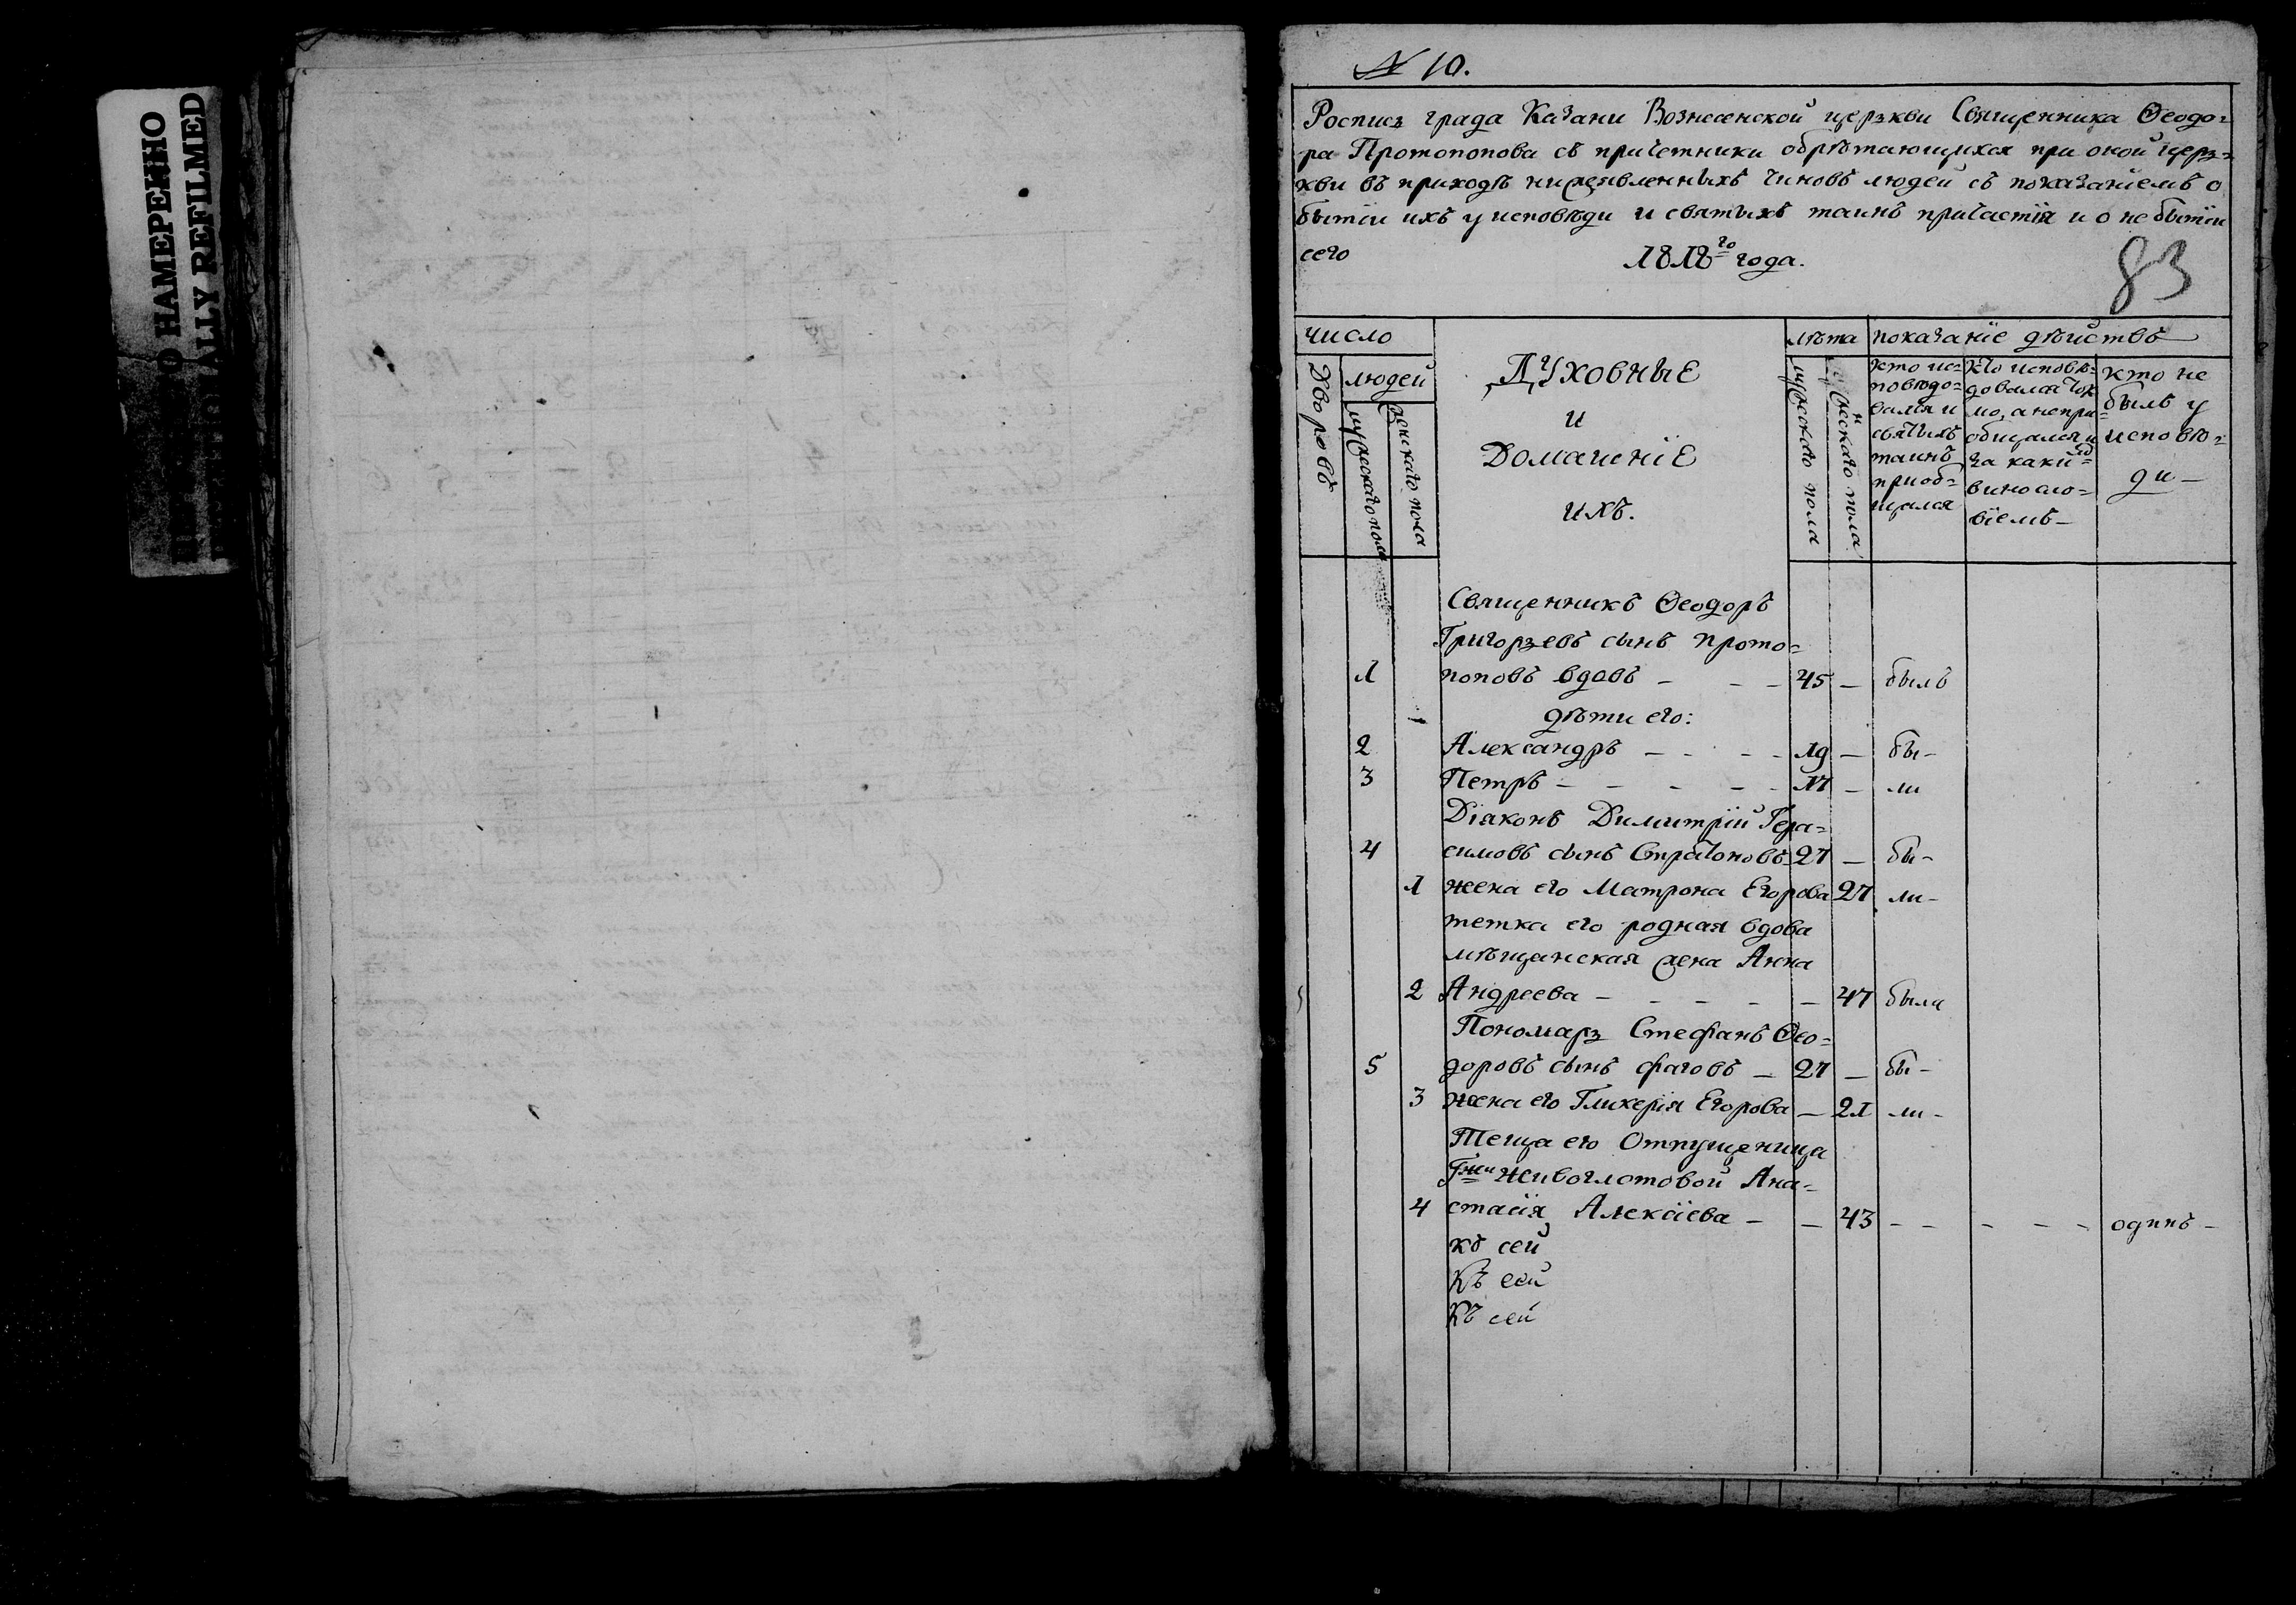 НАМЕРЕННО
ALLY REFILMED
№ 10.
Роспись града Казани Вознесенской церькви Священника Ѳеодо=
ра Протопопова съ причетники обрѣтающихся при оной церь=
кви въ приходѣ нижеявленныхъ чиновъ людей съ показаніемъ о
бытіи ихъ у исповѣди и святыхъ таинъ причастія и о небытіи
сего 1818го года.
83
число
Дворовъ
людей
мужескаго пола
женскаго пола
Духовные
и
Домашніе
ихъ.
лѣта
мужескаго пола
женскаго пола
показаніе дѣйствъ
кто ис=
повѣдо=
вался и
святыхъ
таинъ
приоб=
щался
кто исповѣ=
довался ток
мо, а непри=
общался и
за какимъ
винсло=
віемъ —
кто не
былъ у
исповѣ=
ди —
Священникъ Ѳеодоръ
Григорьевъ сынъ Прото=
1 поповъ вдовъ — — — 45 — былъ
дѣти его:
2 Александръ — - - - 19 — бы-
3 Петръ — — - — - 17 — ли
Діаконъ Димитрій Гера=
4 симовъ сынъ Стратоновъ 27 — бы-
1 жена его Матрона Егорова 27 ли-
тетка его родная вдова
мѣщанская жена Анна
2 Андреева — - - - - — 47 была
Пономарь Стефанъ Ѳео=
5 доровъ сынъ Фаговъ — 27 — бы-
3 жена его Гликерія Егорова — 21 ли-
Теща его Отпущеница
Гжи Живоглотовой Ана=
4 стасія Алексіева — — 43 - - - - - одинъ -
къ сей
Къ сей
Къ сей